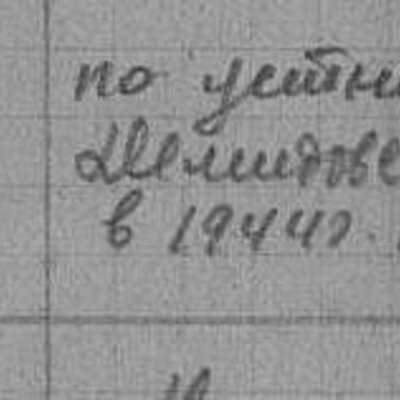 по устн
Демидове
в 1944г.